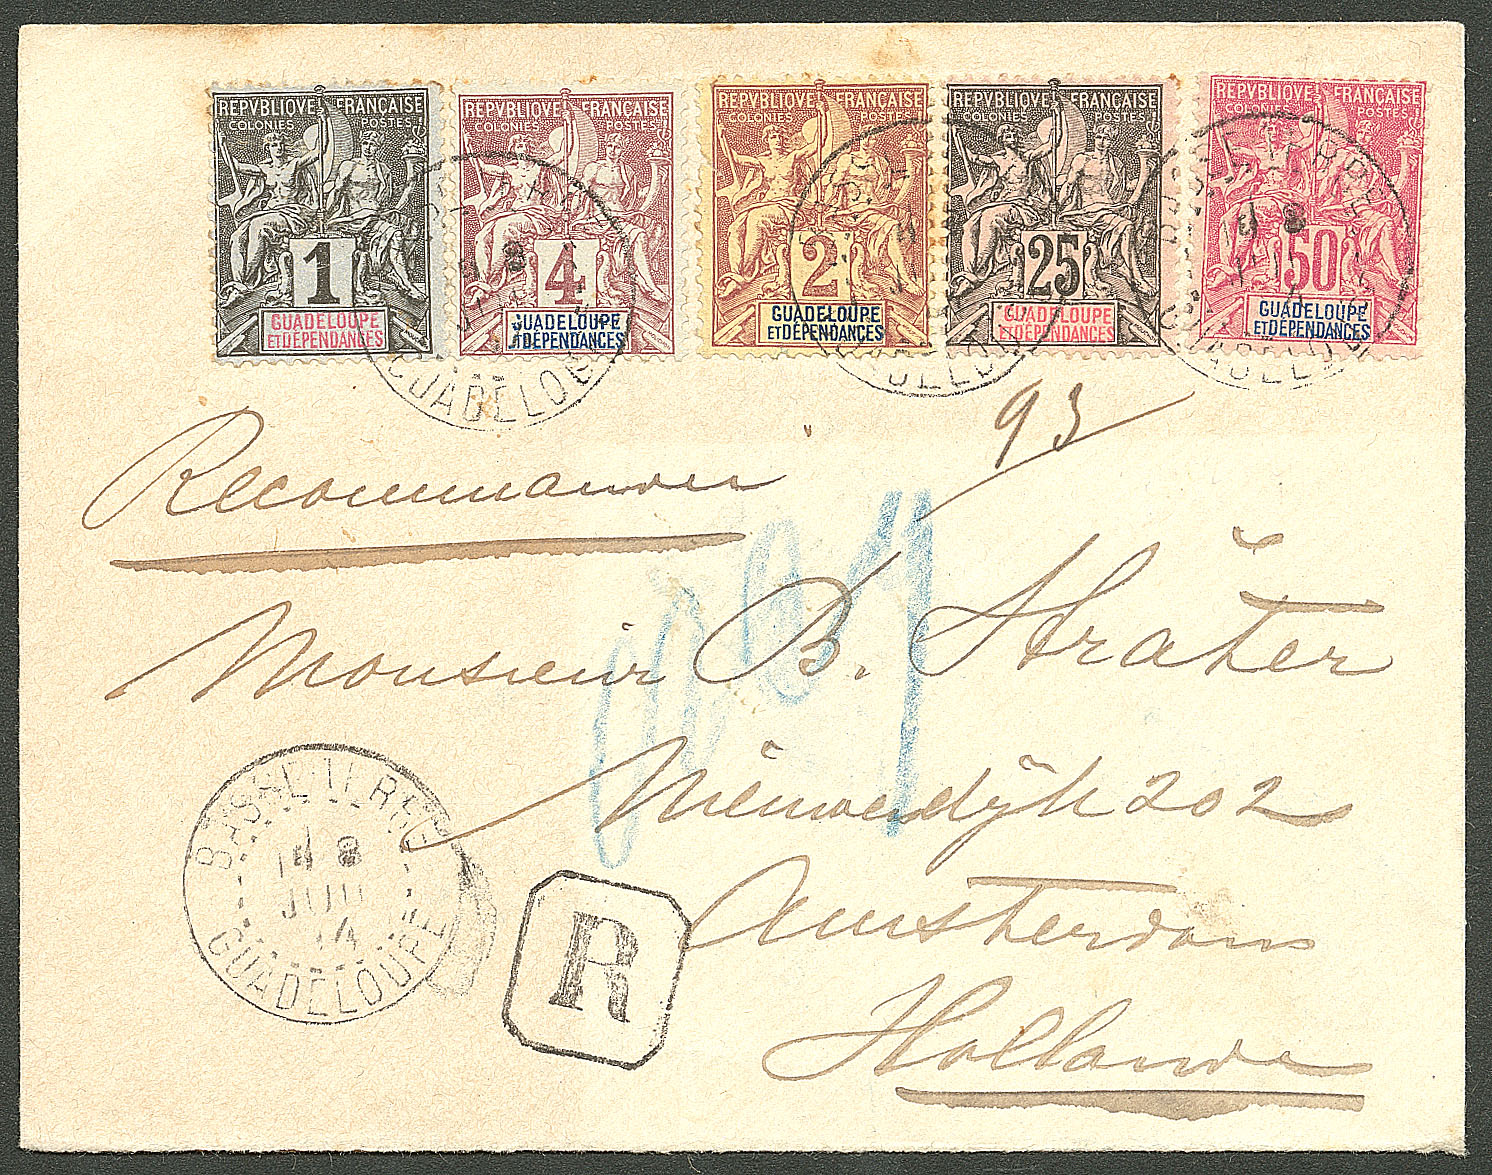 REPVBLIQVE FRANÇAISE
COLONIES POSTES
1
GUADELOUPE
ET DÉPENDANCES
REPVBLIQVE FRANÇAISE
COLONIES POSTES
4
GUADELOUPE
ET DÉPENDANCES
REPVBLIQVE FRANÇAISE
COLONIES POSTES
2
GUADELOUPE
ET DÉPENDANCES
REPVBLIQVE FRANÇAISE
COLONIES POSTES
25
GUADELOUPE
ET DÉPENDANCES
REPVBLIQVE FRANÇAISE
COLONIES POSTES
50
GUADELOUPE
ET DÉPENDANCES
GUADELOUPE
BASSE TERRE
GUADELOUPE
93
Monsieur B. Sträter
Nieuwendijk 202
Amsterdam
Hollande
BASSE TERRE
GUADELOUPE
R